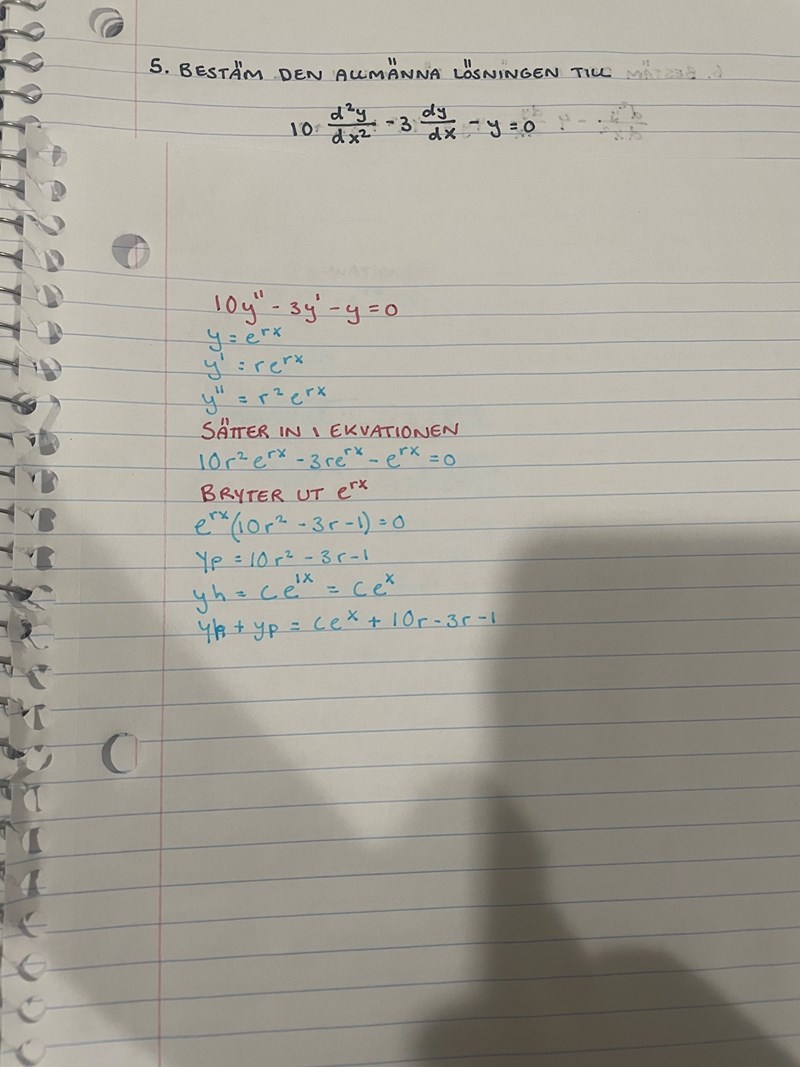 5. BESTÄM DEN ALLMÄNNA LÖSNINGEN TILL
10 d²y/dx² - 3 dy/dx - y = 0
10y'' - 3y' - y = 0
y = e^{rx}
y' = re^{rx}
y'' = r²e^{rx}
SÄTTER IN I EKVATIONEN
10r²e^{rx} - 3re^{rx} - e^{rx} = 0
BRYTER UT e^{rx}
e^{rx}(10r² - 3r - 1) = 0
yp = 10r² - 3r - 1
yh = Ce^{1x} = Ce^x
yh + yp = Ce^x + 10r - 3r - 1